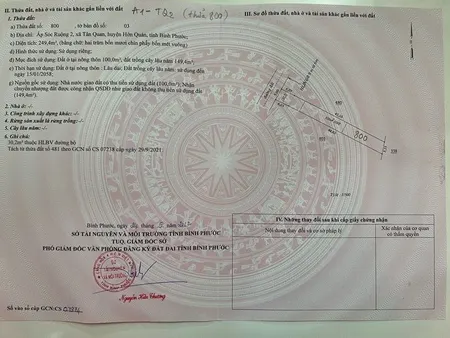 II. Thửa đất, nhà ở và tài sản khác gắn liền với đất
A1-TQ2 (thửa 800)
1. Thửa đất:
a) Thửa đất số: 800 , tờ bản đồ số: 03
b) Địa chỉ: Ấp Sóc Ruộng 2, xã Tân Quan, huyện Hớn Quản, tỉnh Bình Phước;
c) Diện tích: 249,4m², (bằng chữ: hai trăm bốn mươi chín phẩy bốn mét vuông)
d) Hình thức sử dụng: Sử dụng riêng;
đ) Mục đích sử dụng: Đất ở tại nông thôn 100,0m², đất trồng cây lâu năm 149,4m²;
e) Thời hạn sử dụng: Đất ở tại nông thôn : Lâu dài; Đất trồng cây lâu năm: sử dụng đến
ngày 15/01/2058;
g) Nguồn gốc sử dụng: Nhà nước giao đất có thu tiền sử dụng đất (100,0m²); Nhận
chuyển nhượng đất được công nhận QSDĐ như giao đất không thu tiền sử dụng đất
(149,4m²).
2. Nhà ở: -/-
3. Công trình xây dựng khác: -/-
4. Rừng sản xuất là rừng trồng: -/-
5. Cây lâu năm: -/-
6. Ghi chú:
30,2m² thuộc HLBV đường bộ
Tách từ thửa đất số 481 theo GCN số CS 07778 cấp ngày 29/9/2021.
Bình Phước, ngày
SỞ TÀI NGUYÊN VÀ MÔI TRƯỜNG TỈNH BÌNH PHƯỚC
TUQ. GIÁM ĐỐC SỞ
PHÓ GIÁM ĐỐC VĂN PHÒNG ĐĂNG KÝ ĐẤT ĐAI TỈNH BÌNH PHƯỚC
Số vào sổ cấp GCN:CS
III. Sơ đồ thửa đất, nhà ở và tài sản khác gắn liền với đất
800
IV. Những thay đổi sau khi cấp giấy chứng nhận
Nội dung thay đổi và cơ sở pháp lý
Xác nhận của cơ quan
có thẩm quyền